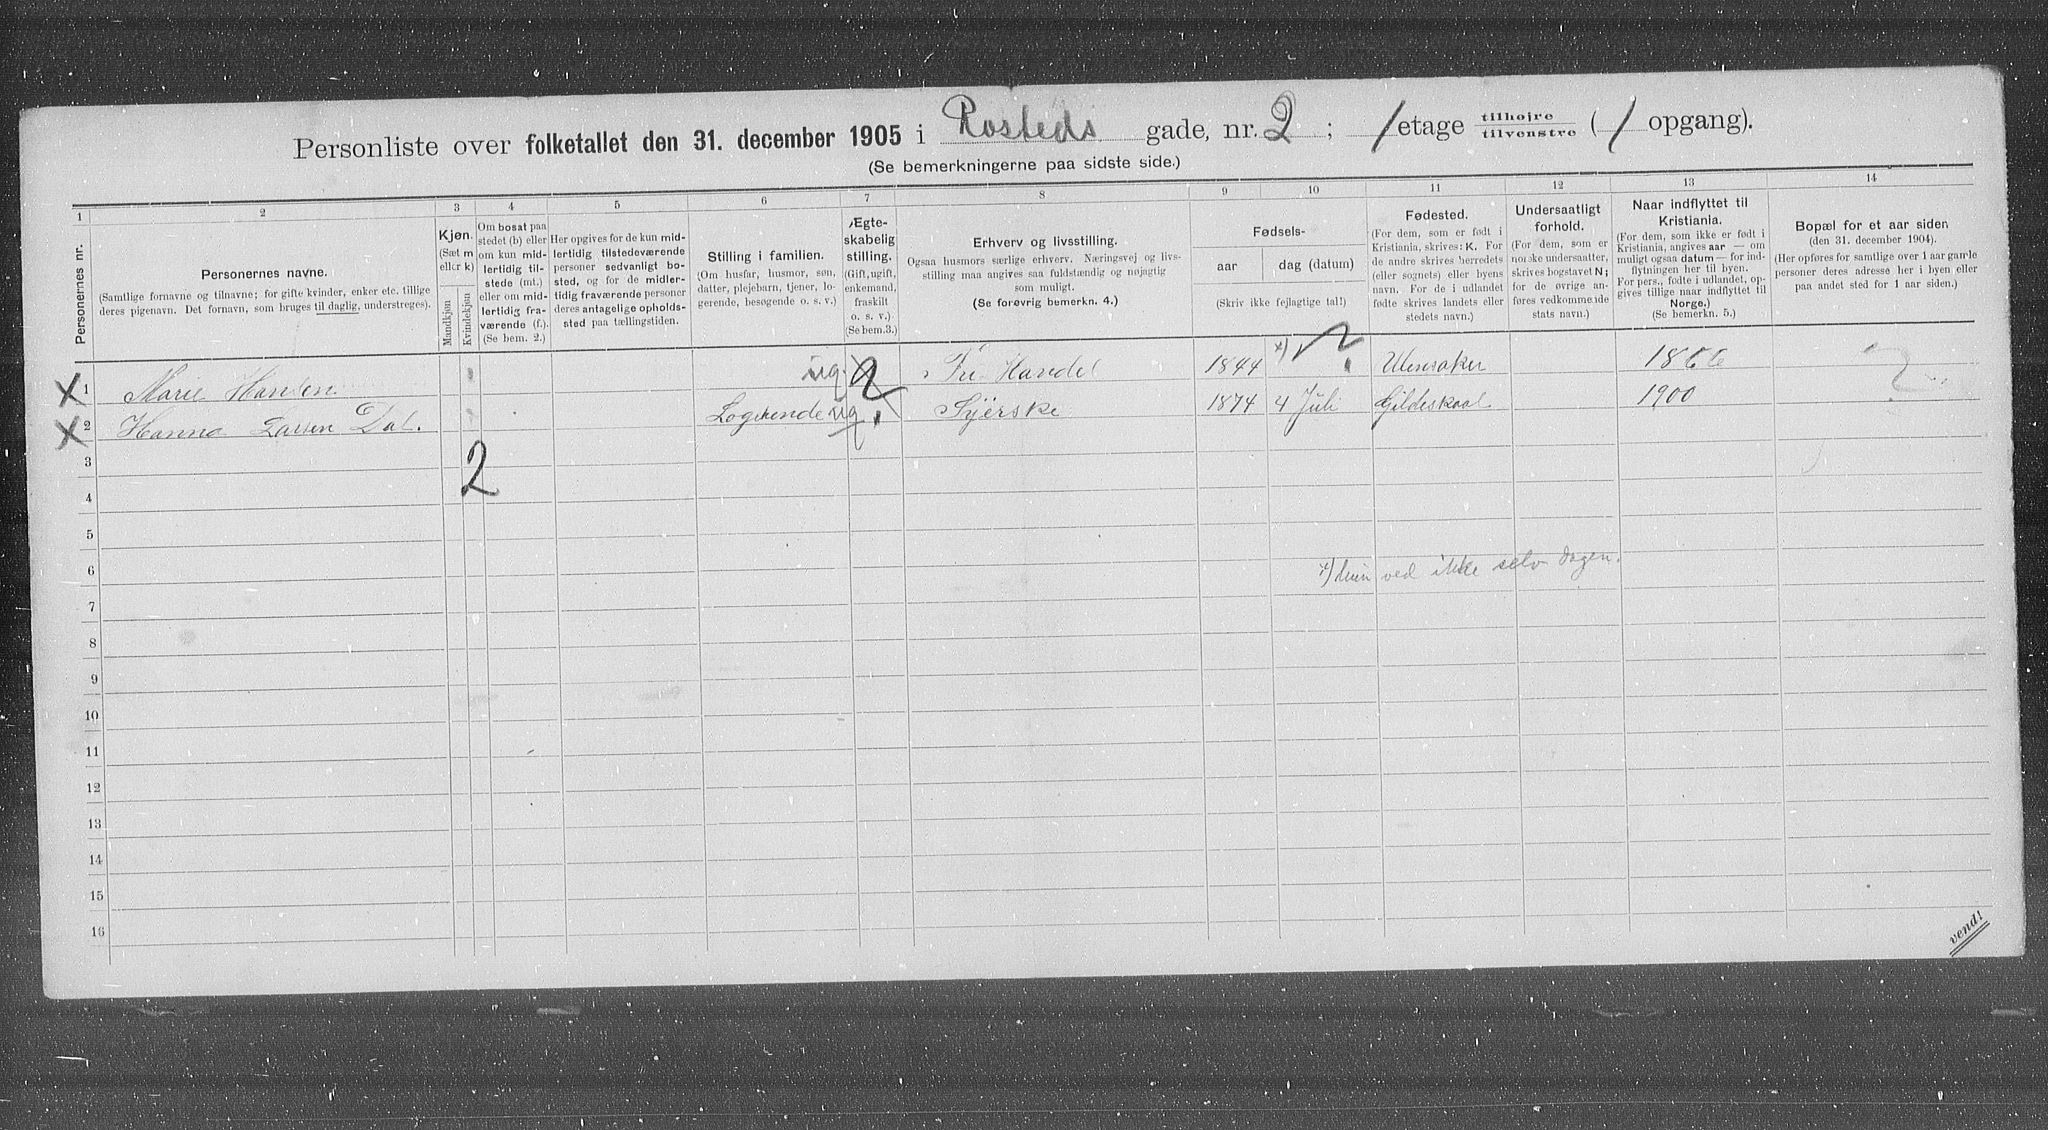 Personliste over folketallet den 31. december 1905 i Rosteds gade, nr. 2 ; 1 etage tilhøjre tilvenstre ( 1 opgang).
(Se bemerkningerne paa sidste side.)
1 2 3 4 5 6 7 8 9 10 11 12 13 14
Personernes nr.
Personernes navne.
(Samtlige fornavne og tilnavne; for gifte kvinder, enker etc. tillige
deres pigenavn. Det fornavn, som bruges til daglig, understreges).
Kjøn.
(Sæt m
eller k)
Mandkjøn
Kvindekjøn
Om bosat paa
stedet (b) eller
om kun mid-
lertidig til-
stede (mt.)
eller om mid-
lertidig fra-
værende (f.).
(Se bem. 2.)
Her opgives for de kun mid-
lertidig tilstedeværende
personer sedvanligt bo-
sted, og for de midler-
tidig fraværende personer
deres antagelige opholds-
sted paa tællingstiden.
Stilling i familien.
(Om husfar, husmor, søn,
datter, plejebarn, tjener, lo-
gerende, besøgende o. s. v.)
Ægte-
skabelig
stilling.
(Gift, ugift,
enkemand,
fraskilt
o. s. v.)
(Se bem.3.)
Erhverv og livsstilling.
Ogsaa husmors særlige erhverv. Næringsvej og livs-
stilling maa angives saa fuldstændig og nøjagtig
som muligt.
(Se forøvrig bemerkn. 4.)
Fødsels-
aar dag (datum)
(Skriv ikke fejlagtige tal!)
Fødested.
(For dem, som er født i
Kristiania, skrives: K. For
de andre skrives herredets
(eller sognets) eller byens
navn. For de i udlandet
fødte skrives landets eller
stedets navn.)
Undersaatligt
forhold.
(For dem, som er
norske undersaatter,
skrives bogstavet N;
for de øvrige an-
føres vedkommende
stats navn.)
Naar indflyttet til
Kristiania.
(For dem, som ikke er født i
Kristiania, angives aar — om
muligt ogsaa datum — for ind-
flytningen her til byen.
For pers., fødte i udlandet, op-
gives tillige naar indflyttet til
Norge.)
(Se bemerkn. 5.)
Bopæl for et aar siden
(den 31. december 1904).
(Her opføres for samtlige over 1 aar gamle
personer deres adresse her i byen eller
paa andet sted for 1 aar siden.)
X 1 Marie Hansen ug. 2 Fri Handel 1844 x) ? Ulensaker 1866 ?
X 2 Hanna Larsen Dal. Logerende ug Syerske 1874 4 Juli Gildeskaal 1900
3
2
4
5
6
x) hun ved ikke selv dagen.
7
8
9
10
11
12
13
14
15
16
vend!